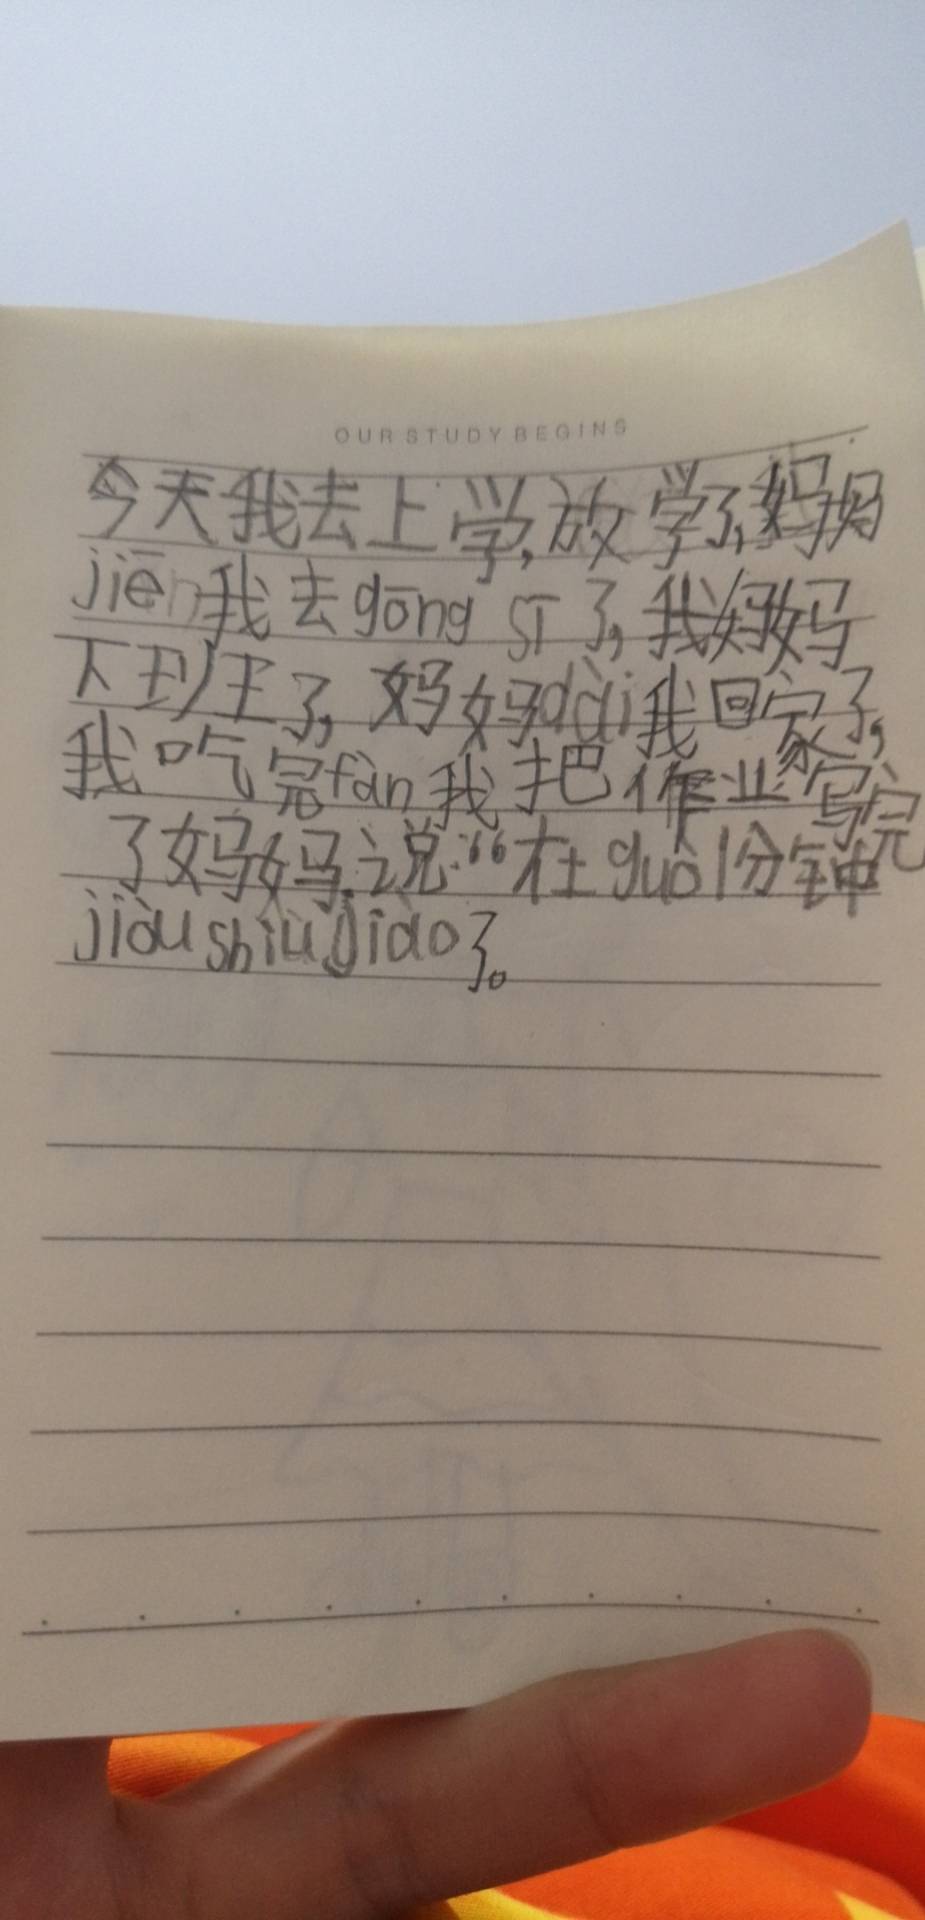 OUR STUDY BEGINS
今天我去上学,放学了,妈妈
jiēn我去gōng sī了,我妈妈
下班了,妈妈dài我回家了,
我吃完fàn我把作业写完
了妈妈说“在guò1分钟
jiòu shiùjiào了。